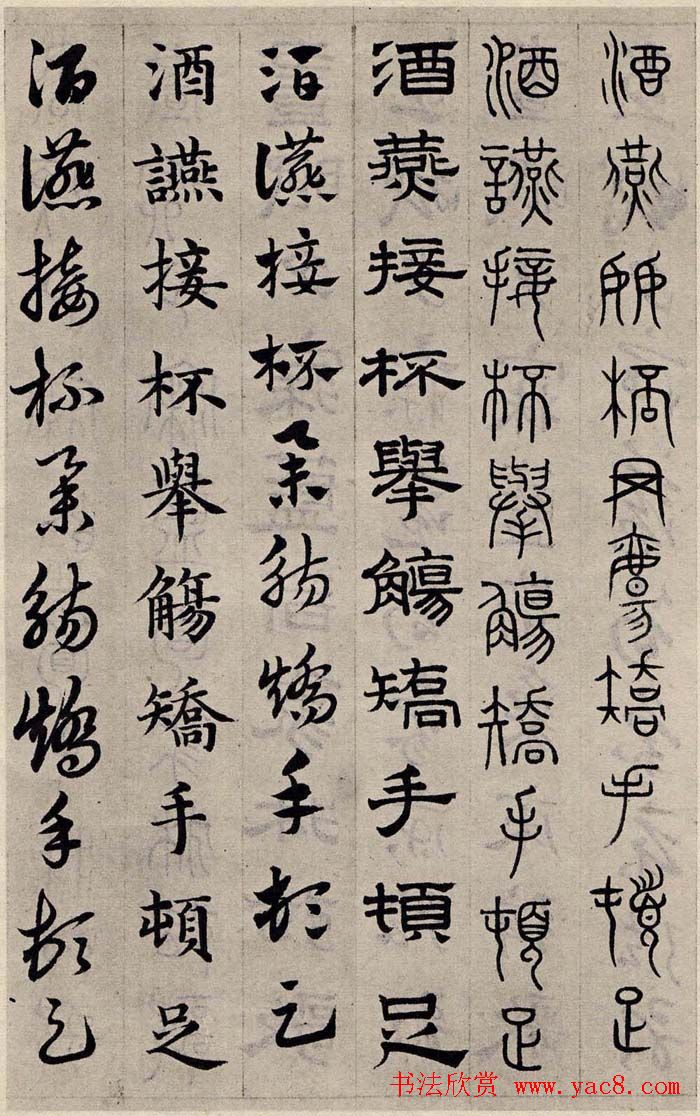 酒燕接杯舉觴矯手頓足
酒讌接杯舉觴矯手頓足
酒燕接杯舉觴矯手頓足
酒讌接杯舉觴矯手頓足
酒讌接杯舉觴矯手頓足
酒讌接杯舉觴矯手頓足
书法欣赏 www.yac8.com